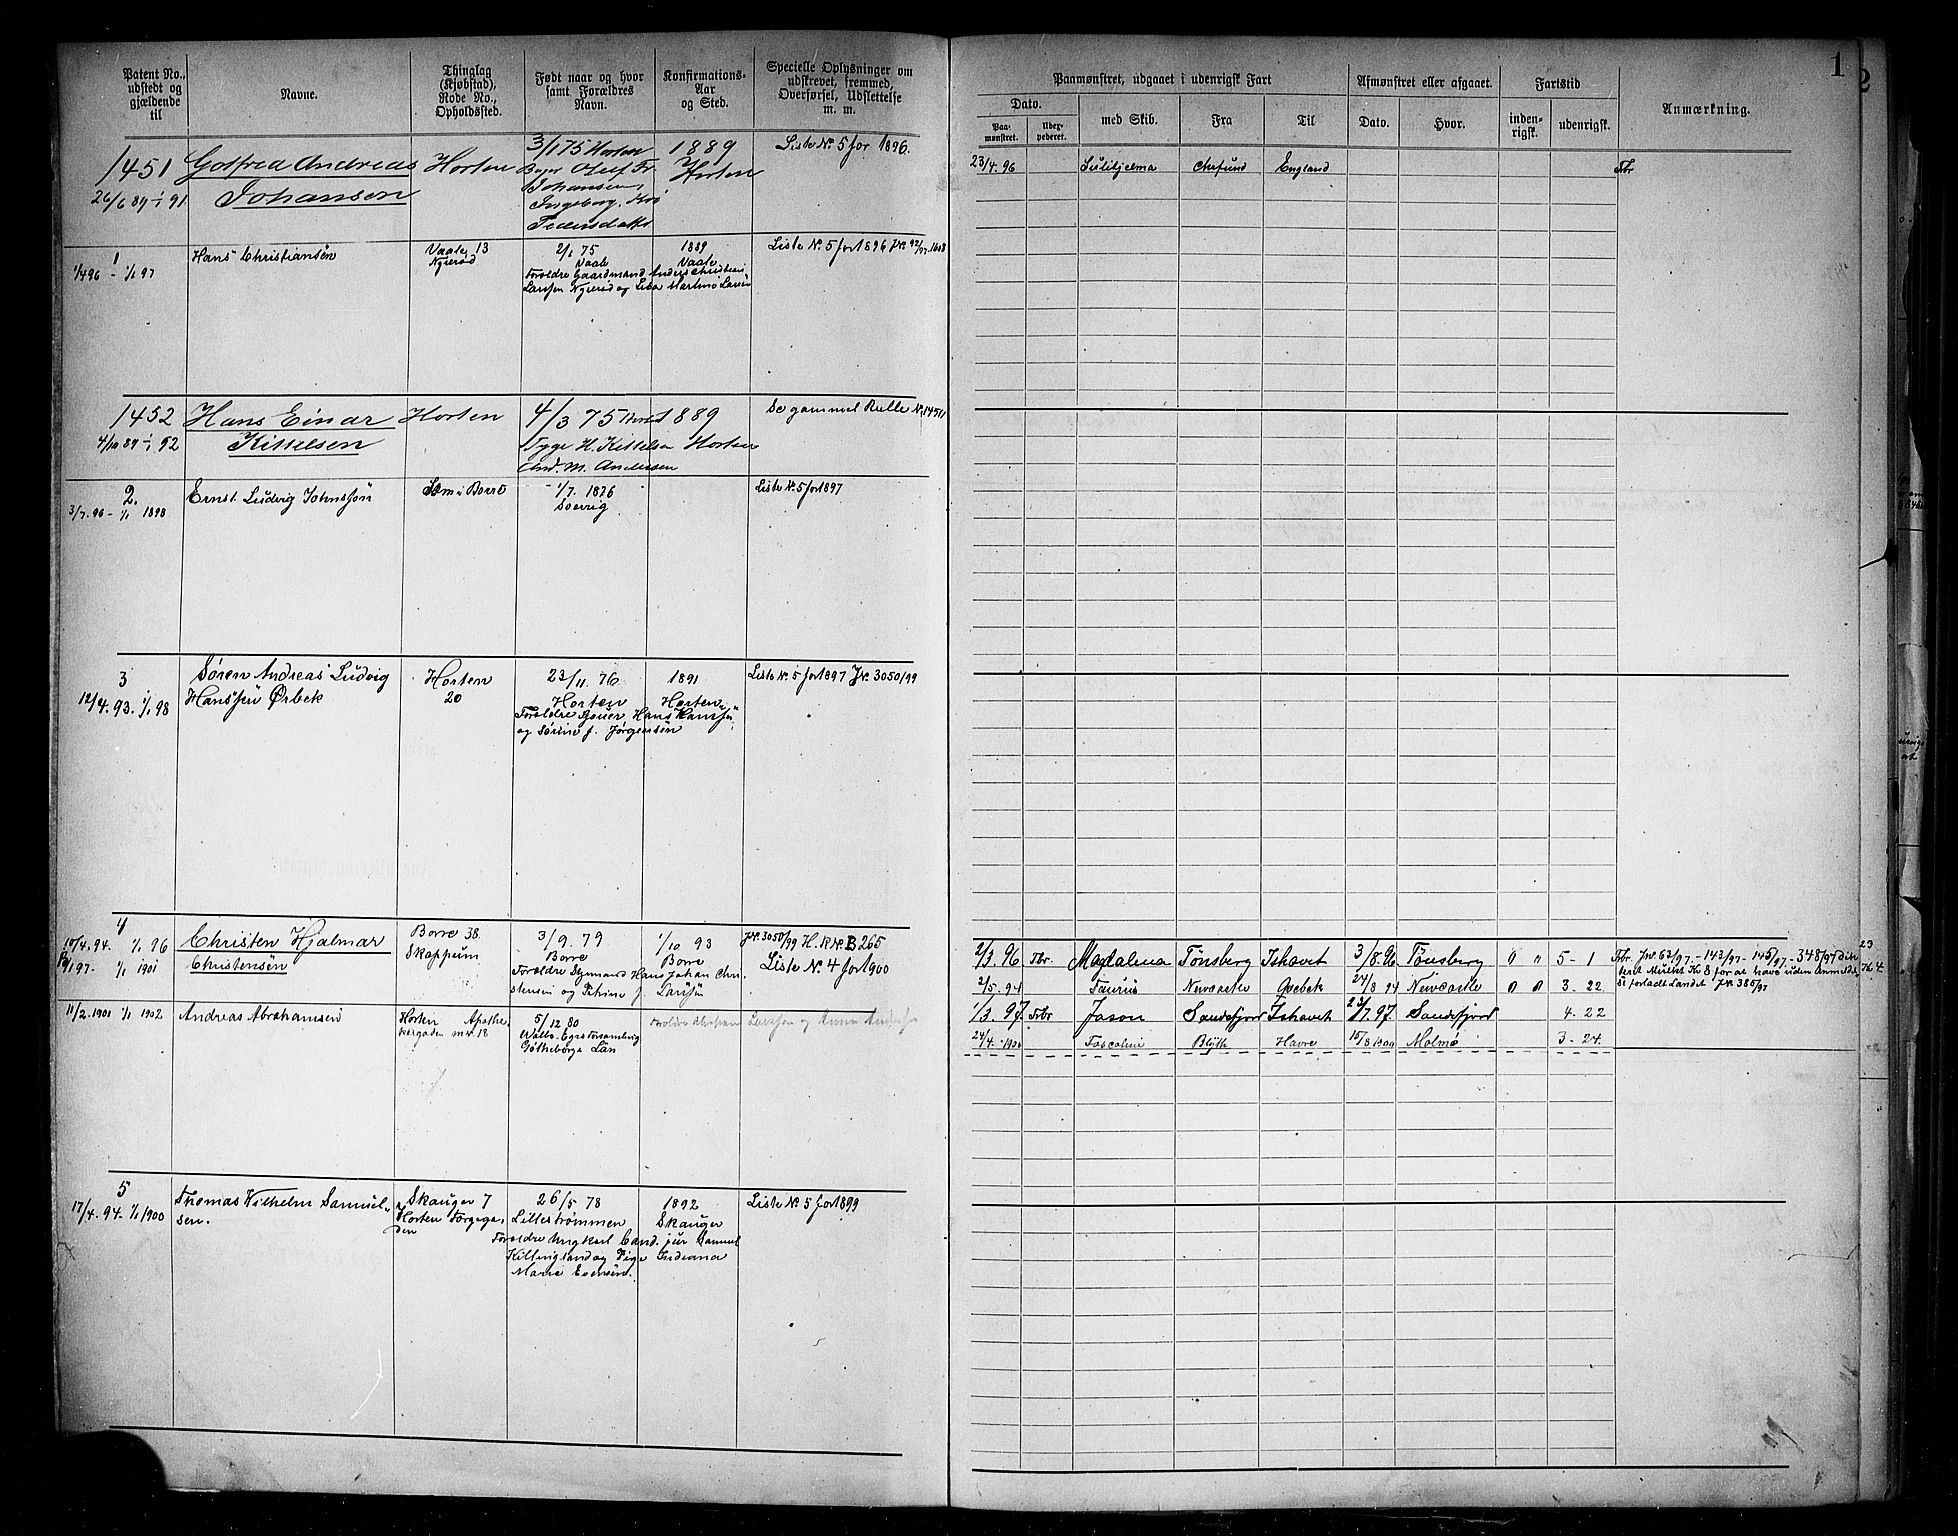 Patent No., udstedt og gjældende til
Navne.
Thinglag (Kjøbstad), Rode No., Opholdssted.
Født naar og hvor samt Forældres Navn.
Konfirmations-Aar og Sted.
Specielle Oplysninger om udskrevet, fremmed, Overførsel, Udslettelse m. m.
Paamønstret, udgaaet i udenrigsk Fart
Afmønstret eller afgaaet.
Fartstid
Anmærkning.
1
2
Dato.
Paa-mønstret.
Udex-pederet.
med Skib.
Fra
Til
Dato.
Hvor.
inden-rigsk.
udenrigsk.
1451
26/6 89 - 1/1 91
Gotfred Andreas
Johansen
Horten
3/1 75 Horten
Oluf Fr.
Johansen
Ingeborg
Pedersdatter
1889
Horten
Liste No. 5 for 1896.
23/4. 96
Sulithjelma
England
Tbr
1
1/4 96 - 1/1 97
Hans Christiansen
Vaale, 13
2/1 75
Vaale
Forældre Gaardmand Anders Christian
Larssen
1889
Vaale
Liste No. 5 for 1896 JNo. 92/97. 1608
1452
4/10 89 - 1/1 92
Hans Einar
Kittelsen
Horten
4/3 75 Horten
Tygge H. Kittelsen
And. M. Andersen
1889
Horten
Se gammel Rulle No. 1451
2.
3/7. 96 - 1/1 1898
Ernst Ludvig Johnssøn
Søm i Borre
1/7. 1876
Liste No. 5 for 1897
3
12/4. 93. 1/1 98
Søren Andreas Ludvig
Hanssen Ørbek
Horten
20
23/11. 76
Horten
Forældre Hans Hanssen
og Sørine f. Jørgensen
1891
Horten
Liste No. 5 for 1897 JNo. 3050/99
4
10/4. 94. 1/1 96
1/1 1901
Christen Hjalmar
Christensen
Borre 38.
Skoppum
3/9. 79
Borre
Forældre Styrmand Hans Johan Chri-
stensen og Petrine f. Larssen
1/10 93
Borre
JNo. 3050/99 H. RNo. B 265
Liste No. 4 for 1900
2/3. 96
Tbr.
Magdalena
Tønsberg
Ishavet
3/8. 96
Tønsberg
0
"
5 - 1
2/5. 94
Taurus
Newcastle
Qvebek
24/8 94
Newcastle
0
0
3. 22.
1/3. 97
Tbr
Jason
Sandefjord
Ishavet
Sandefjord
4. 22
24/4. 1900
Blyth
Havre
15/8 1900
Malmø
3 - 24.
Tbr. JNo. 63/97 - 143/97 - 145/97 - 348/97
teret Mulkt Kr 8 for at have uden Anmeld-
se forladt Landet. JNo. 385/97
11/2. 1901 1/1 1902
Andreas Abrahamsen
Horten Apothe-
kergaden m. v. 18
5/12 80
Göteborgs Län
Forældre Abraham
Larssen og Anna
5
17/4. 94. 1/1 1900
Thomas Wilhelm Samuel-
sen.
Skauger 7
Horten Torvega-
den
26/5 78
Lillestrømmen
Forældre Ungkarl Cand. jur Samuel
Killingland og Pige Indiana
Marie Evensen.
1892
Skauger
Liste No. 5 for 1899